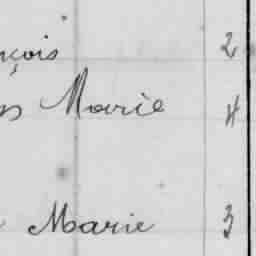 nçois 2
Marie 4
Marie 3